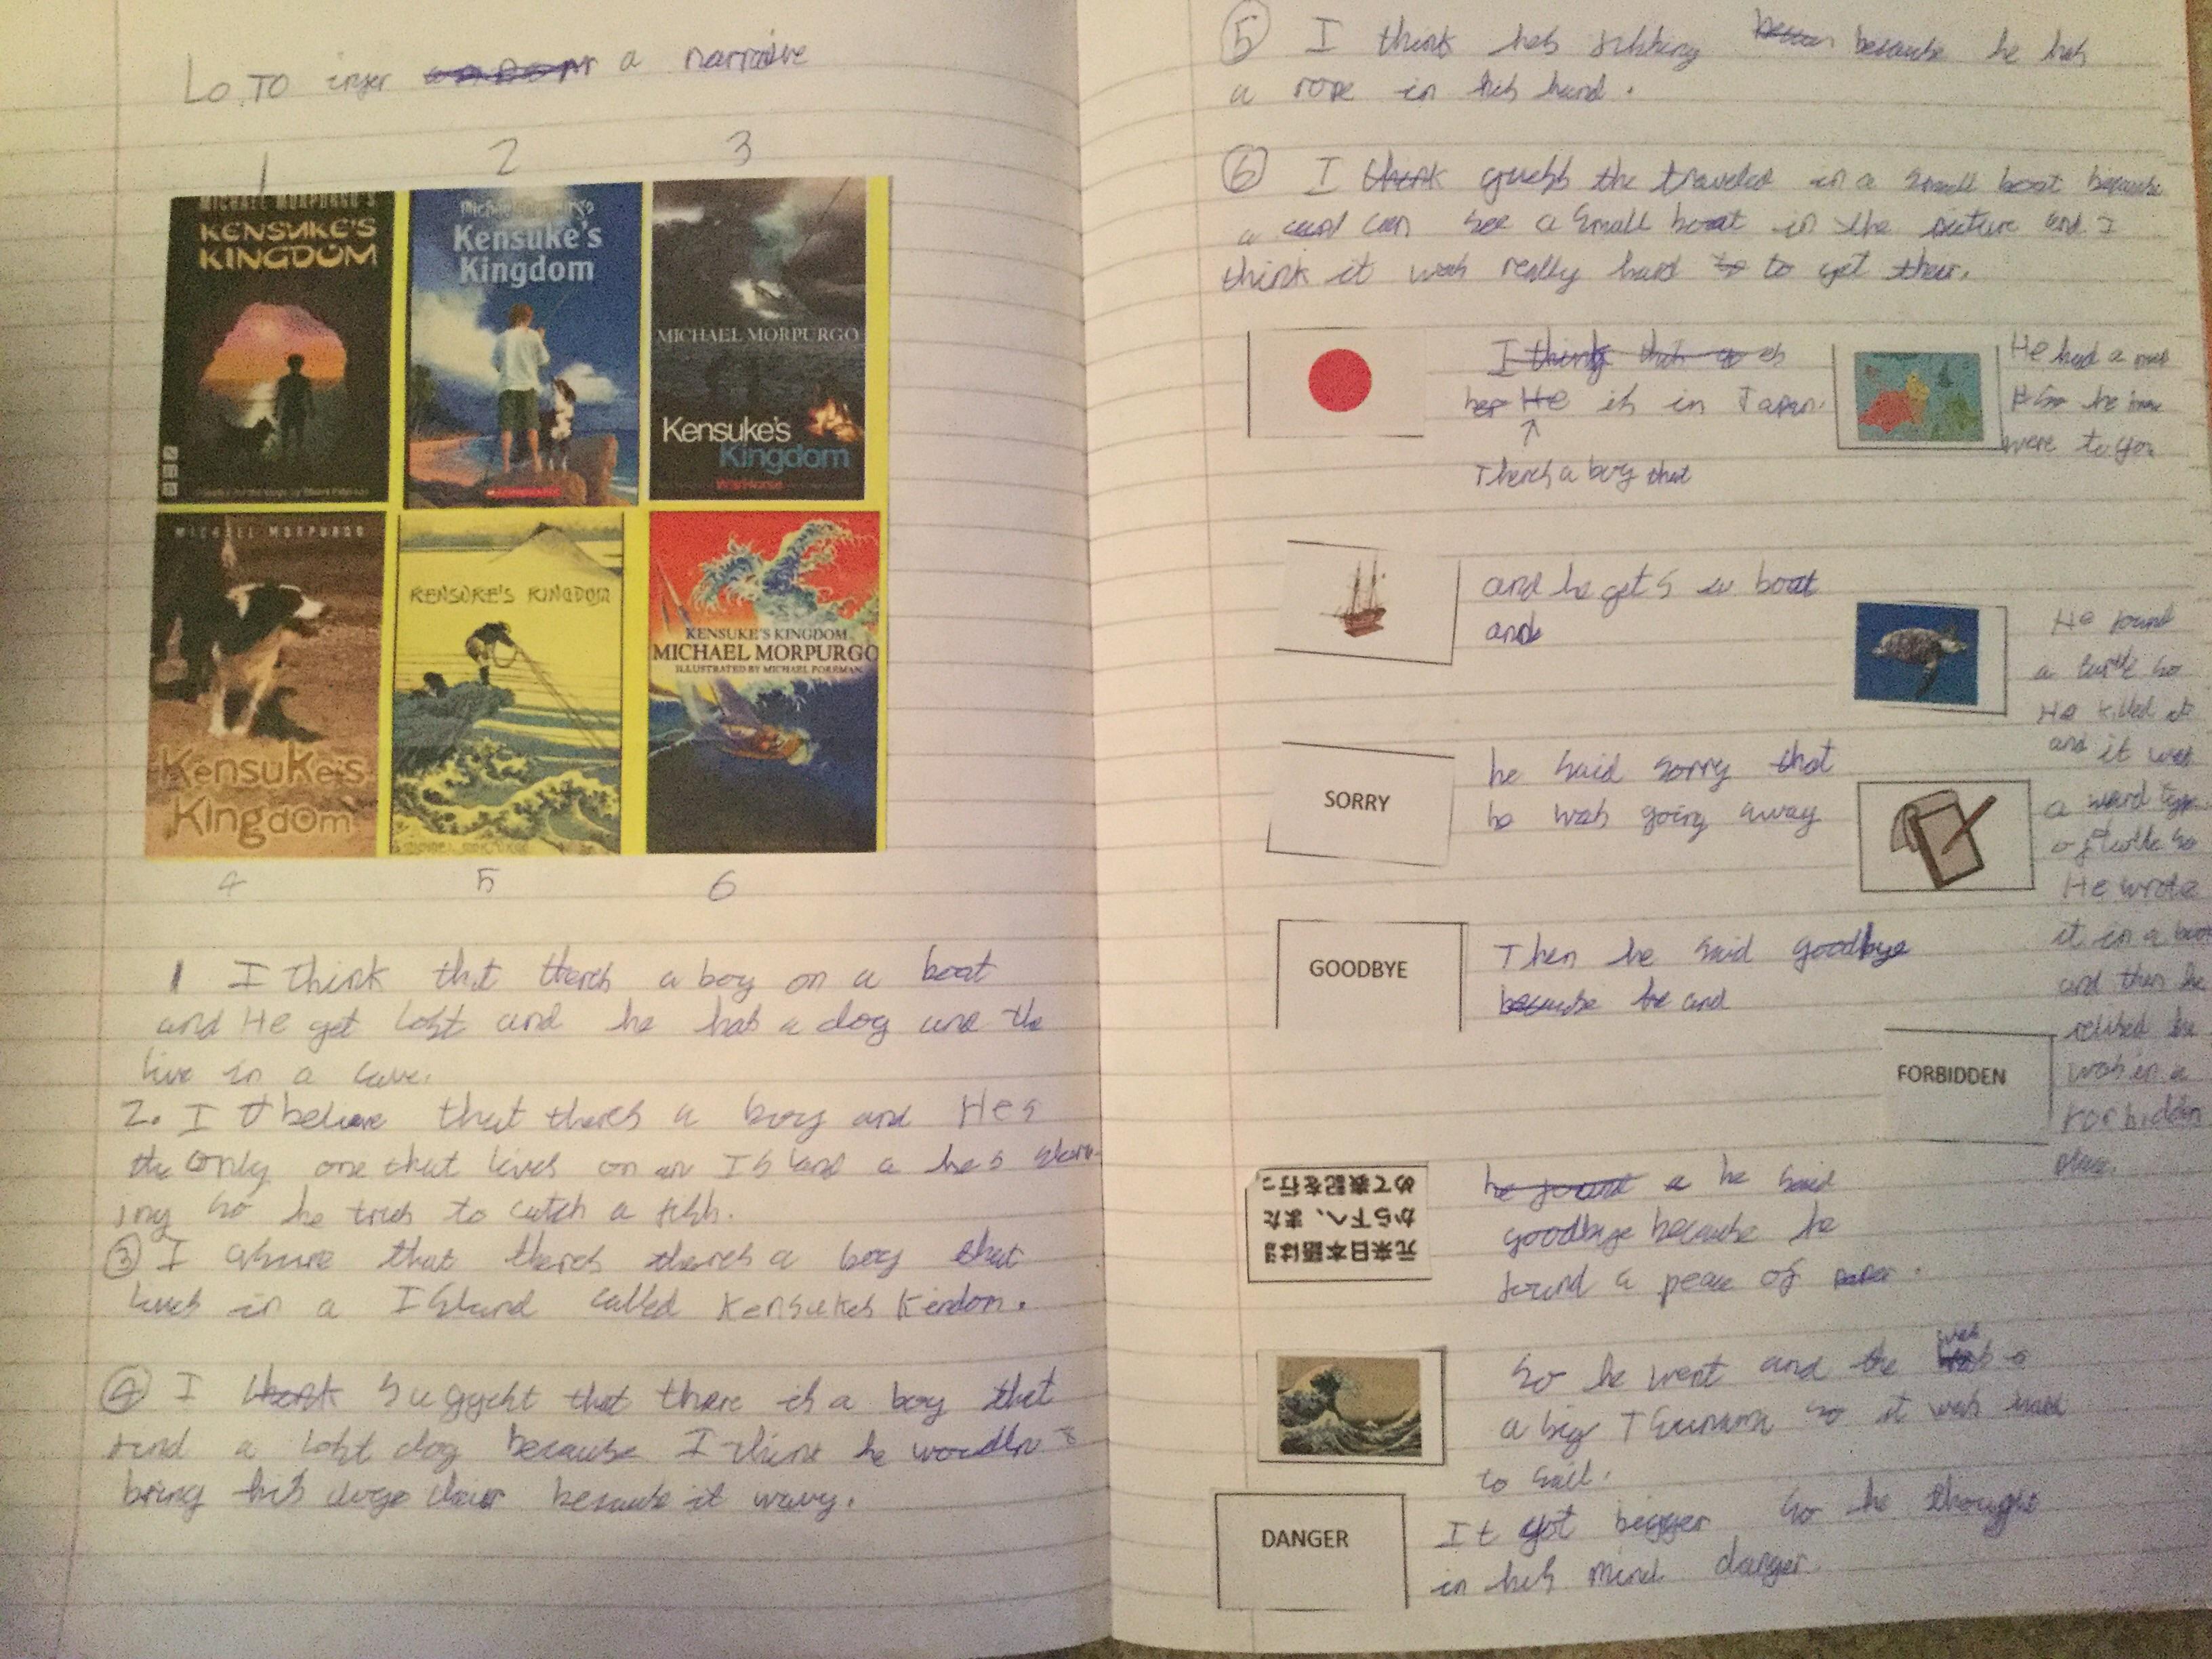 LO. TO infer a narrative
1 2 3
MICHAEL MORPURGO'S
KENSUKE'S
KINGDOM
Michael Morpurgo
Kensuke's
Kingdom
SCHOLASTIC
MICHAEL MORPURGO
Kensuke's
Kingdom
War Horse
MICHAEL MORPURGO
Kensuke's
Kingdom
KENSUKE'S KINGDOM
MICHAEL MORPURGO
KENSUKE'S KINGDOM
MICHAEL MORPURGO
ILLUSTRATED BY MICHAEL FOREMAN
4 5 6
1 I think that theres a boy on a boat
and He get Lost and he has a dog and the
live in a cave.
2. I believe that theres a boy and Hes
the only one that lives on an Island a hes starv-
ing so he tries to catch a fish.
3 I asure that theres theres a boy that
lives in a Island called Kensukes Kindom.
4 I think suggest that there is a boy that
find a lost dog because I think he wouldn't
bring his doge their because it wavy.
5 I think hes fishing because he has
a rope in his hand.
6 I think guess the traveled in a small boat because
a can see a small boat in the picture and I
think it was really hard to to get their.
I think that
He is in Japan.
Theres a boy that
and he gets a boat
and
SORRY
he said sorry that
he was going away
GOODBYE
Then he said goodbye
because he and
めて表記を行っ
から下へ、また
元来日本語は
he found a he said
goodbye because he
found a peace of paper.
So he went and the was
a big Tsunami so it was hard
to sail.
DANGER
It got bigger so he thought
in his mind danger.
He had a map
so he know
were to go.
He found
a turtle so
He killed it
and it was
a weard type
of turtle so
He wrote
it in a book
and then he
relised he
was in a
forbidden
place.
FORBIDDEN